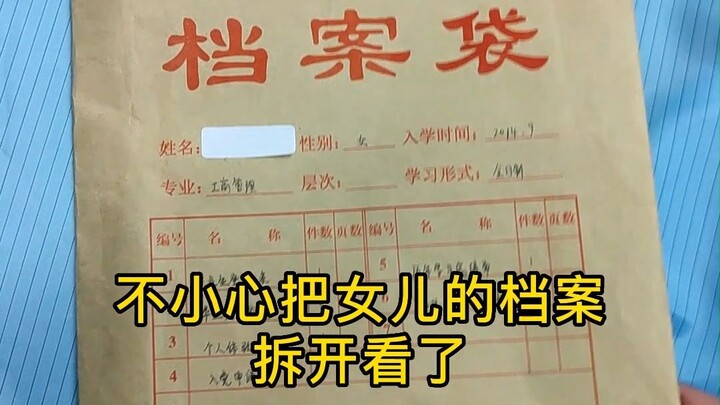 档案袋
姓名: 性别: 女 入学时间: 2014.9
专业: 工商管理 层次: 学习形式: 全日制
编号 名 称 件数 页数 编号 名 称 件数 页数
1 5 1
6
3 个人体
4 入党申
不小心把女儿的档案
拆开看了